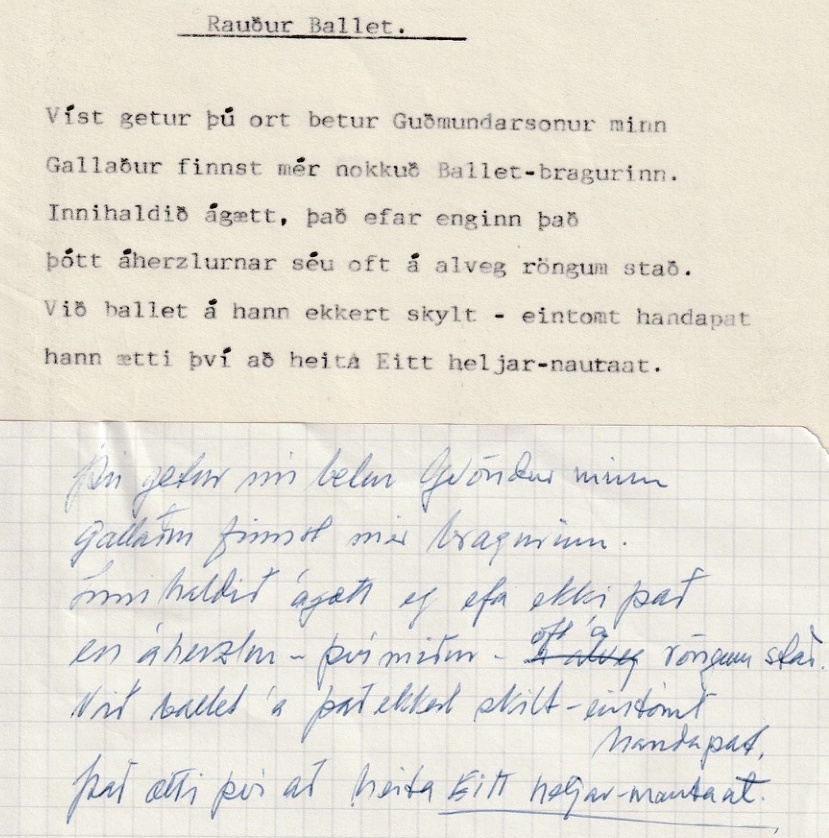 Rauður Ballet.
Víst getur þú ort betur Guðmundarsonur minn
Gallaður finnst mér nokkuð Ballet-bragurinn.
Innihaldið ágætt, það efar enginn það
þótt áherzlurnar séu oft á alveg röngum stað.
Við ballet á hann ekkert skylt - eintomt handapat
hann ætti því að heita Eitt heljar-nautaat.
Þú getur nú betur Gvöndur minn
Gallaður finnst mér bragurinn.
Innihaldið ágætt eg efa ekki það
oft á
en áherzlur - því miður - á alveg röngum stað.
Við ballet á það ekkert skilt - eintómt
handapat,
Það ætti því að heita Eitt heljar-nautaat.